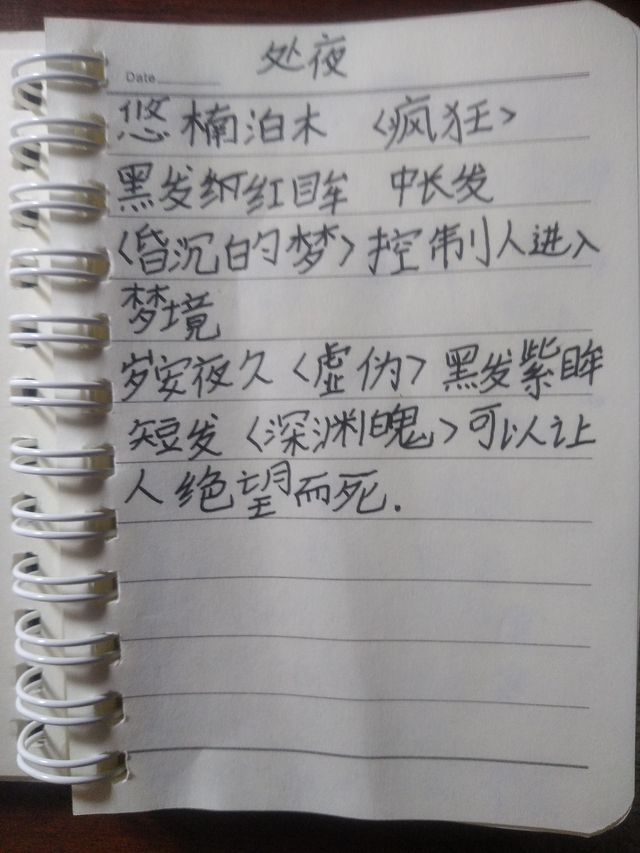 处夜
Date
悠楠泊木 〈疯狂〉
黑发绯红眸 中长发
〈昏沉的梦〉控制人进入
梦境
岁安夜久〈虚伪〉黑发紫眸
短发〈深渊魄〉可以让
人绝望而死.